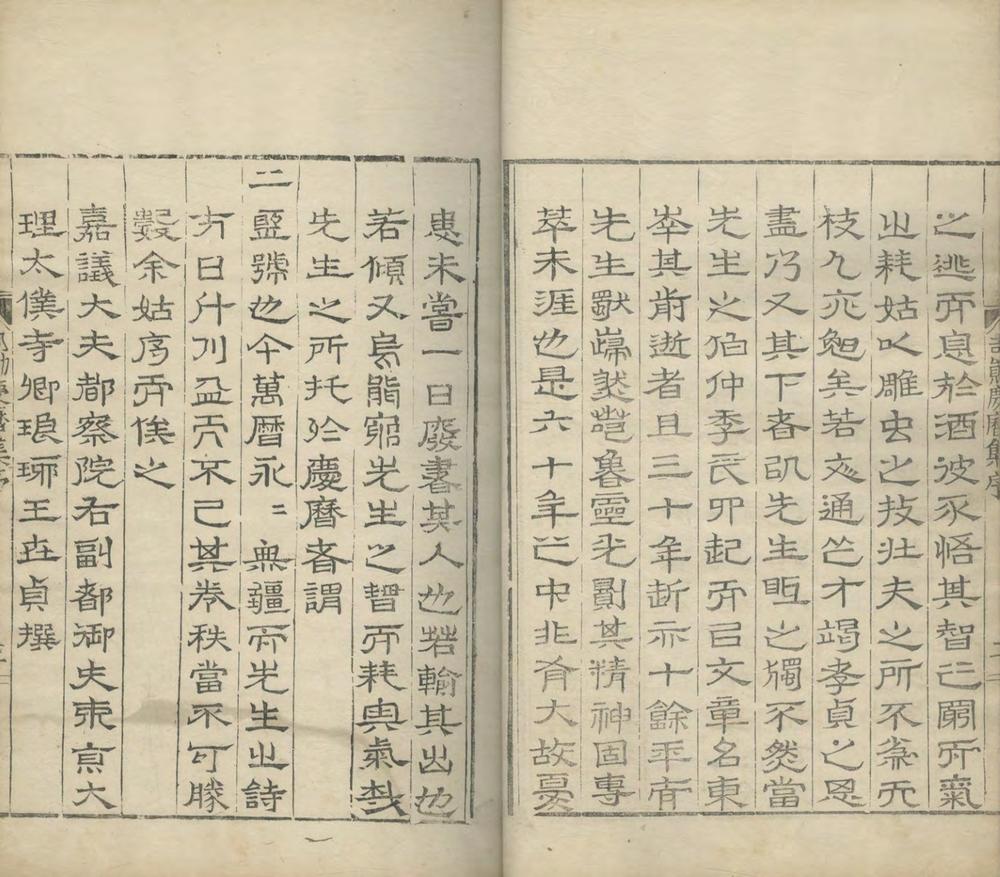 之逃而息於酒彼不悟其智已窮而氣
之耗姑以雕虫之技壯夫之所不為
枝久亦勉矣若文通之才竭孝貞之思
盡乃又其下者則先生眡之獨不然當
先生之伯仲季氏卯起而以文章名東
其前逝者且三十年近亦十餘年而
先生猶巋然魯靈光劃其精神固專
萃未涯也是六十年之中非有大故憂
患未嘗一日廢書其人也若輸其出也
若傾又烏能窮先生之智而耗其氣哉
先生之所托於慶曆者謂
二聖號也今萬曆永〻無疆而先生之詩
方日升川至而不已其卷秩當不可勝
數余姑序而俟之
嘉議大夫都察院右副都御史東京大
理太僕寺卿琅琊王世貞撰